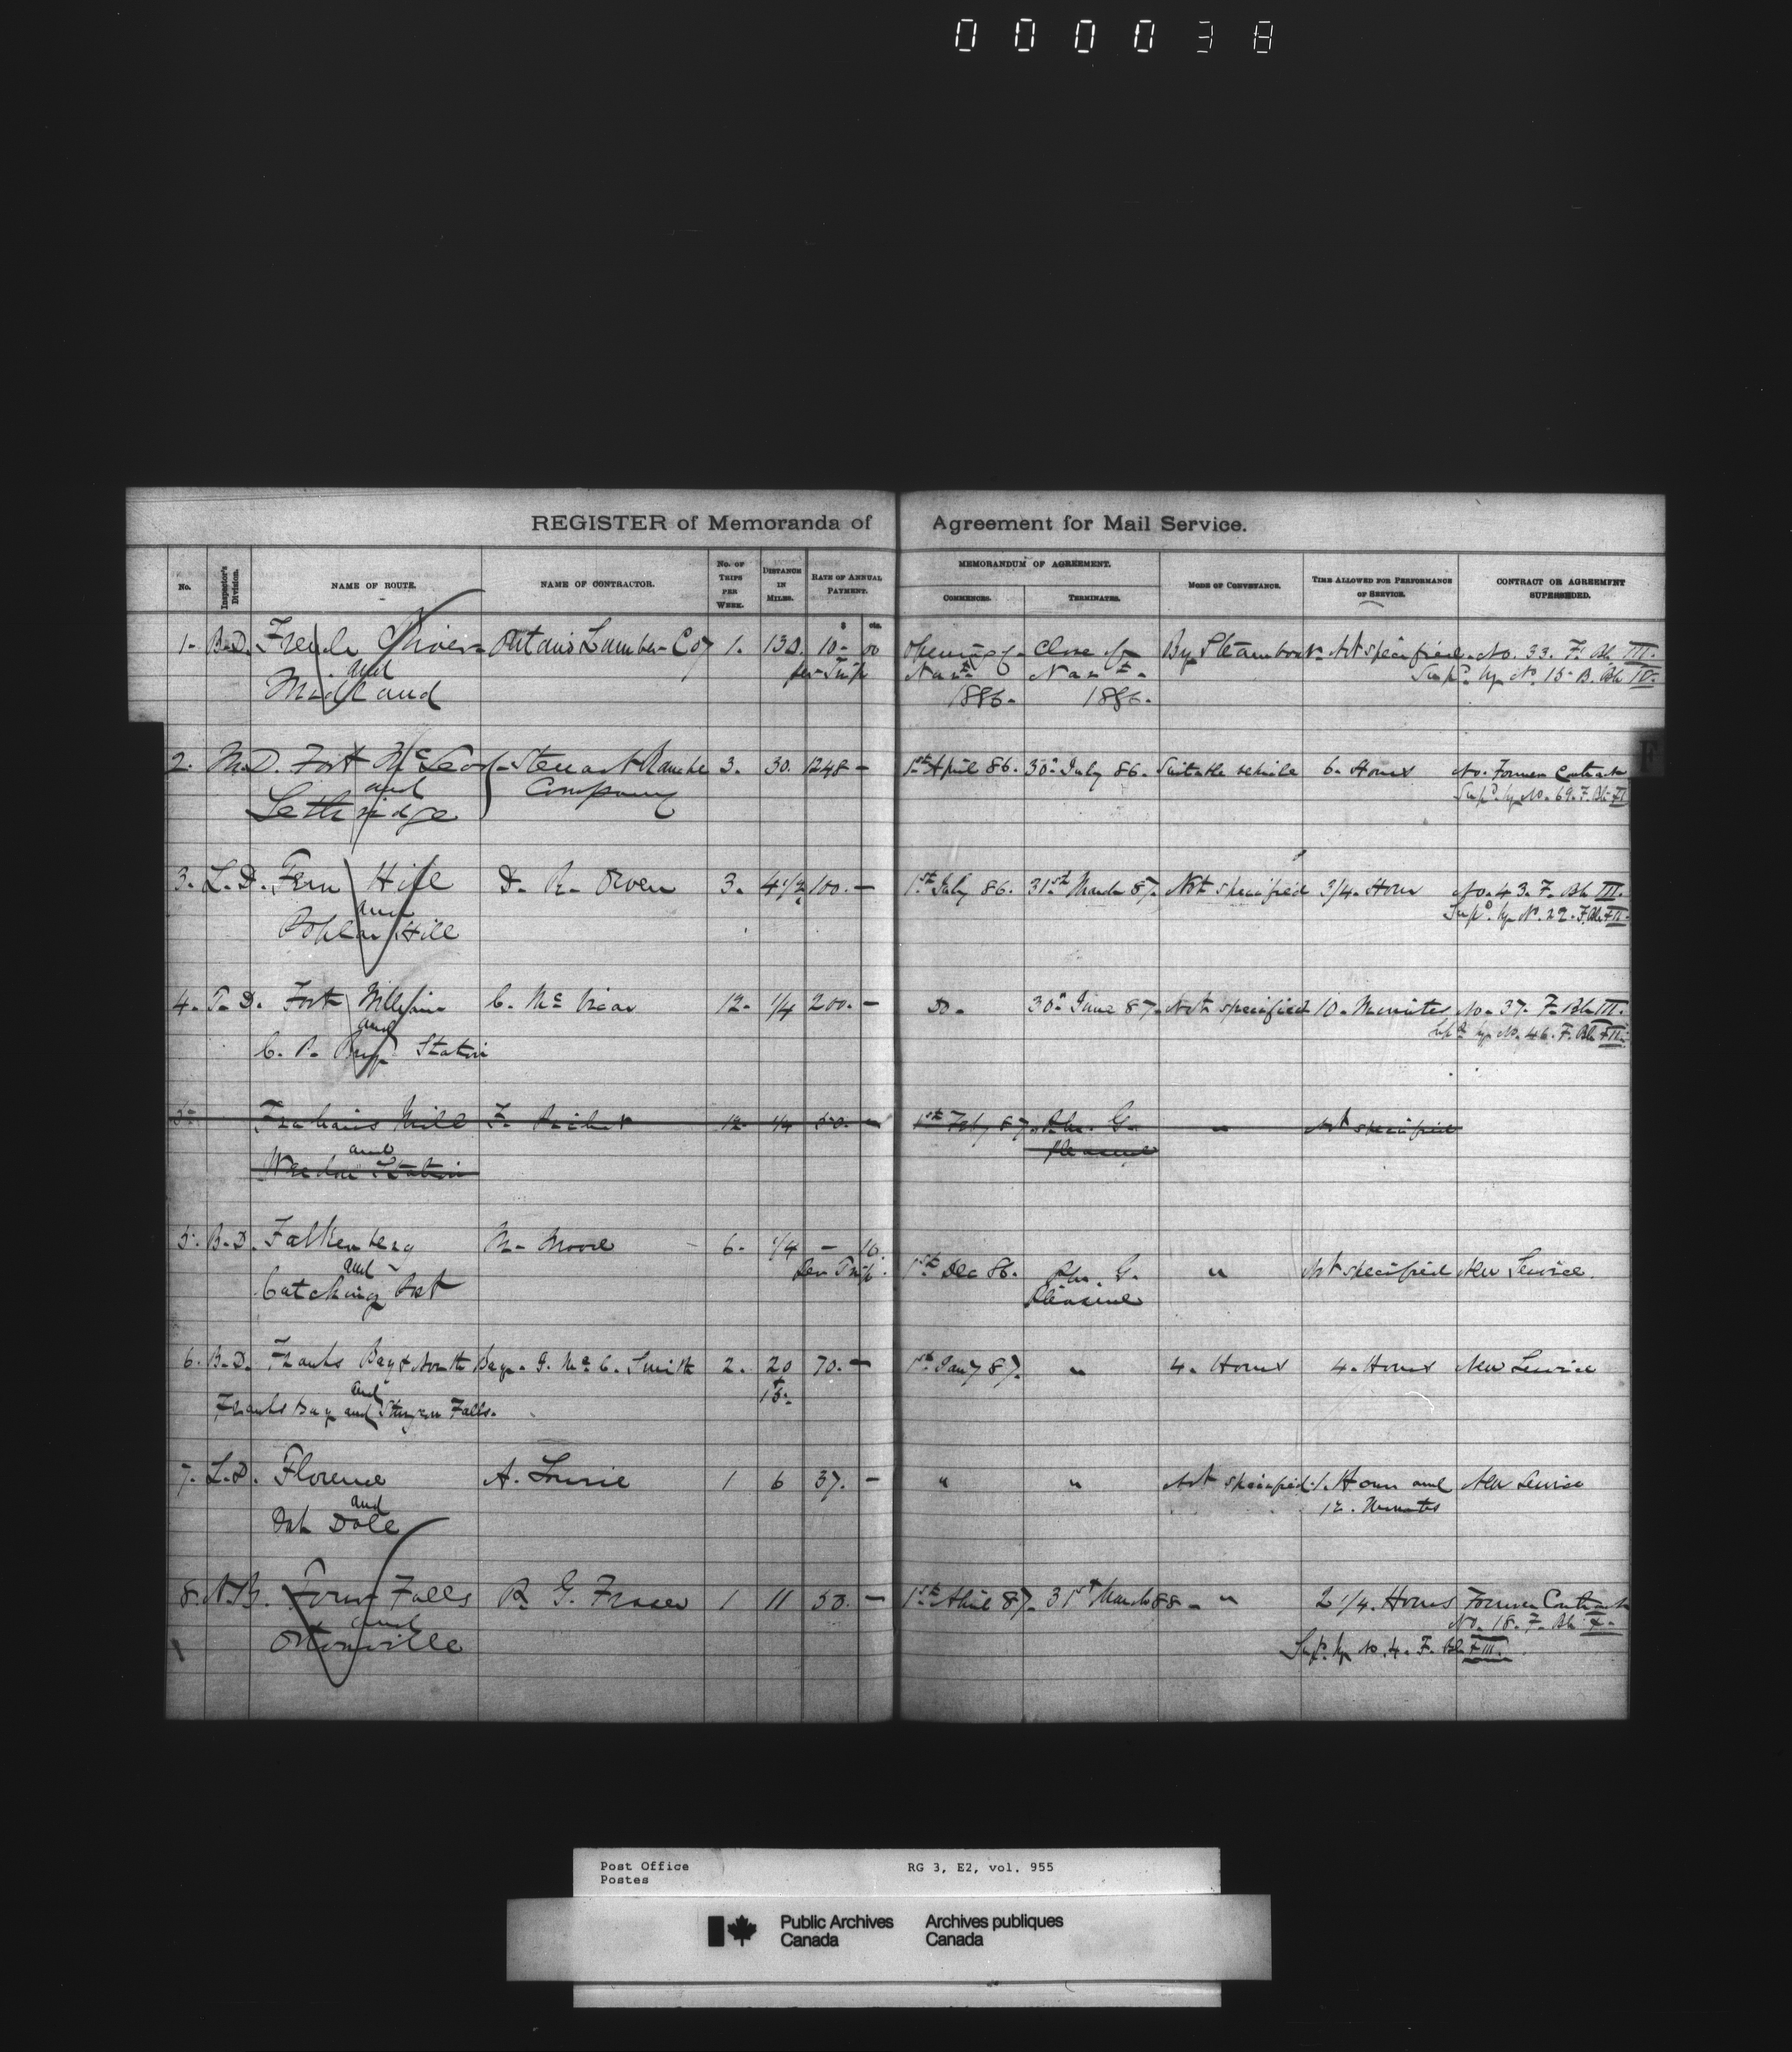 000038
REGISTER of Memoranda of Agreement for Mail Service.
No. Inspector's Division. NAME OF ROUTE. NAME OF CONTRACTOR. No. OF TRIPS PER WEEK. DISTANCE IN MILES. RATE OF ANNUAL PAYMENT. MEMORANDUM OF AGREEMENT. COMMENCES. TERMINATES. MODE OF CONVEYANCE. TIME ALLOWED FOR PERFORMANCE OF SERVICE. CONTRACT OR AGREEMENT SUPERSEDED.
$ cts.
1. B.D. French River Ontario Lumber Coy 1. 130. 10- 00 Opening of Close of By Steamboat Not specified. No. 33. F. Bk III.
and per Trip Navn. Navn. Supd. by No. 15. B. Bk IV.
Midland 1886. 1886.
2. M.D. Fort McLeod Stewart Ranche 3. 30. 1248 - 1st April 86. 30th July 86. Suitable vehicle 6. Hours No. Former Contract
and Company Supd. by No. 69. F. Bk
Lethbridge
3. L.D. Fern Hill D. R. Owen 3. 4 1/2 100. - 1st July 86. 31st March 87. Not specified 3/4. Hour No. 43. F. Bk III.
and Supd. by No. 22. F. Bk
Poplar Hill
4. T.D. Fort William C. McVicar 12. 1/4 200. - Do. 30th June 87. Not specified 10. Minutes No. 37. F. Bk III.
and Supd. by No. 46. F. Bk
C. P. Ry. Station
5. Mill F. 12. 1/4 50. - 1st Feby 87. P.M.G. " Not specified
and Pleasure
Station
5. B.D. Falkenberg M. Moore 6. 1/4 - 10. 1st Dec 86. P.M.G. " Not specified New Service.
and Per Trip. Pleasure
Catching Post
6. B.D. Franks Bay & North Bay. J. McC. Smith 2. 20 70. - 1st Jany 87. " 4. Hours 4. Hours New Service
and 15.
Franks Bay and Sturgeon Falls.
7. L.D. Florence A. Lourie 1 6 37. - " " Not specified. 1. Hour and New Service
and 12. Minutes
Oak Dale
8. N.B. Four Falls R. G. Fraser 1 11 50. - 1st April 87. 31st March 88 - " 2 1/4. Hours Former Contract
and No. 18. F. Bk X.
Ortonville Supd. by No. 4. F. Bk
F
Post Office RG 3, E2, vol. 955
Postes
Public Archives Archives publiques
Canada Canada